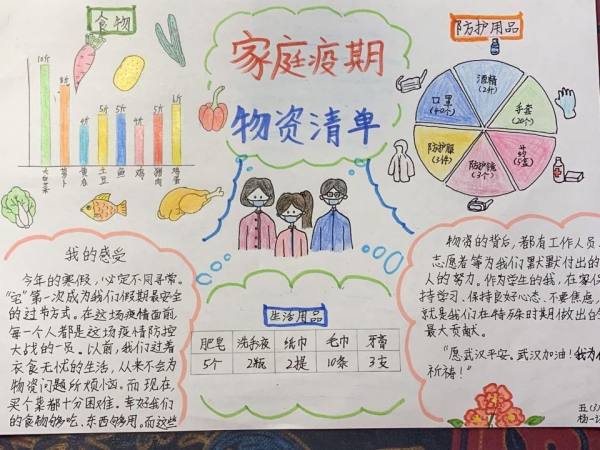 食物
家庭疫期
物资清单
防护用品
10斤
8斤
4斤
5斤
5斤
4斤
5斤
6斤
大白菜
萝卜
黄瓜
土豆
鱼
鸡
猪肉
鸡蛋
酒精
(2斤)
手套
(20个)
药
(5盒)
防护镜
(3个)
防护服
(3件)
口罩
(40个)
我的感受
今年的寒假，必定不同寻常。
"宅"第一次成为我们假期最安全
的过节方式。在这场疫情面前，
每一个人都是这场疫情防控
大战的一员。以前，我们过着
衣食无忧的生活，从来不会为
物资问题所烦恼。而现在，
买个菜都十分困难。幸好我们
的食物够吃、东西够用。而这些
生活用品
肥皂 洗手液 纸巾 毛巾 牙膏
5个 2瓶 2提 10条 3支
物资的背后，都有工作人员、
志愿者等为我们默默付出的
人的努力。作为学生的我，在家
持学习，保持良好心态，不要焦虑，
就是我们在特殊时期做出的
最大贡献。
"愿武汉平安。武汉加油！我为
祈祷！"
五(3)
杨一